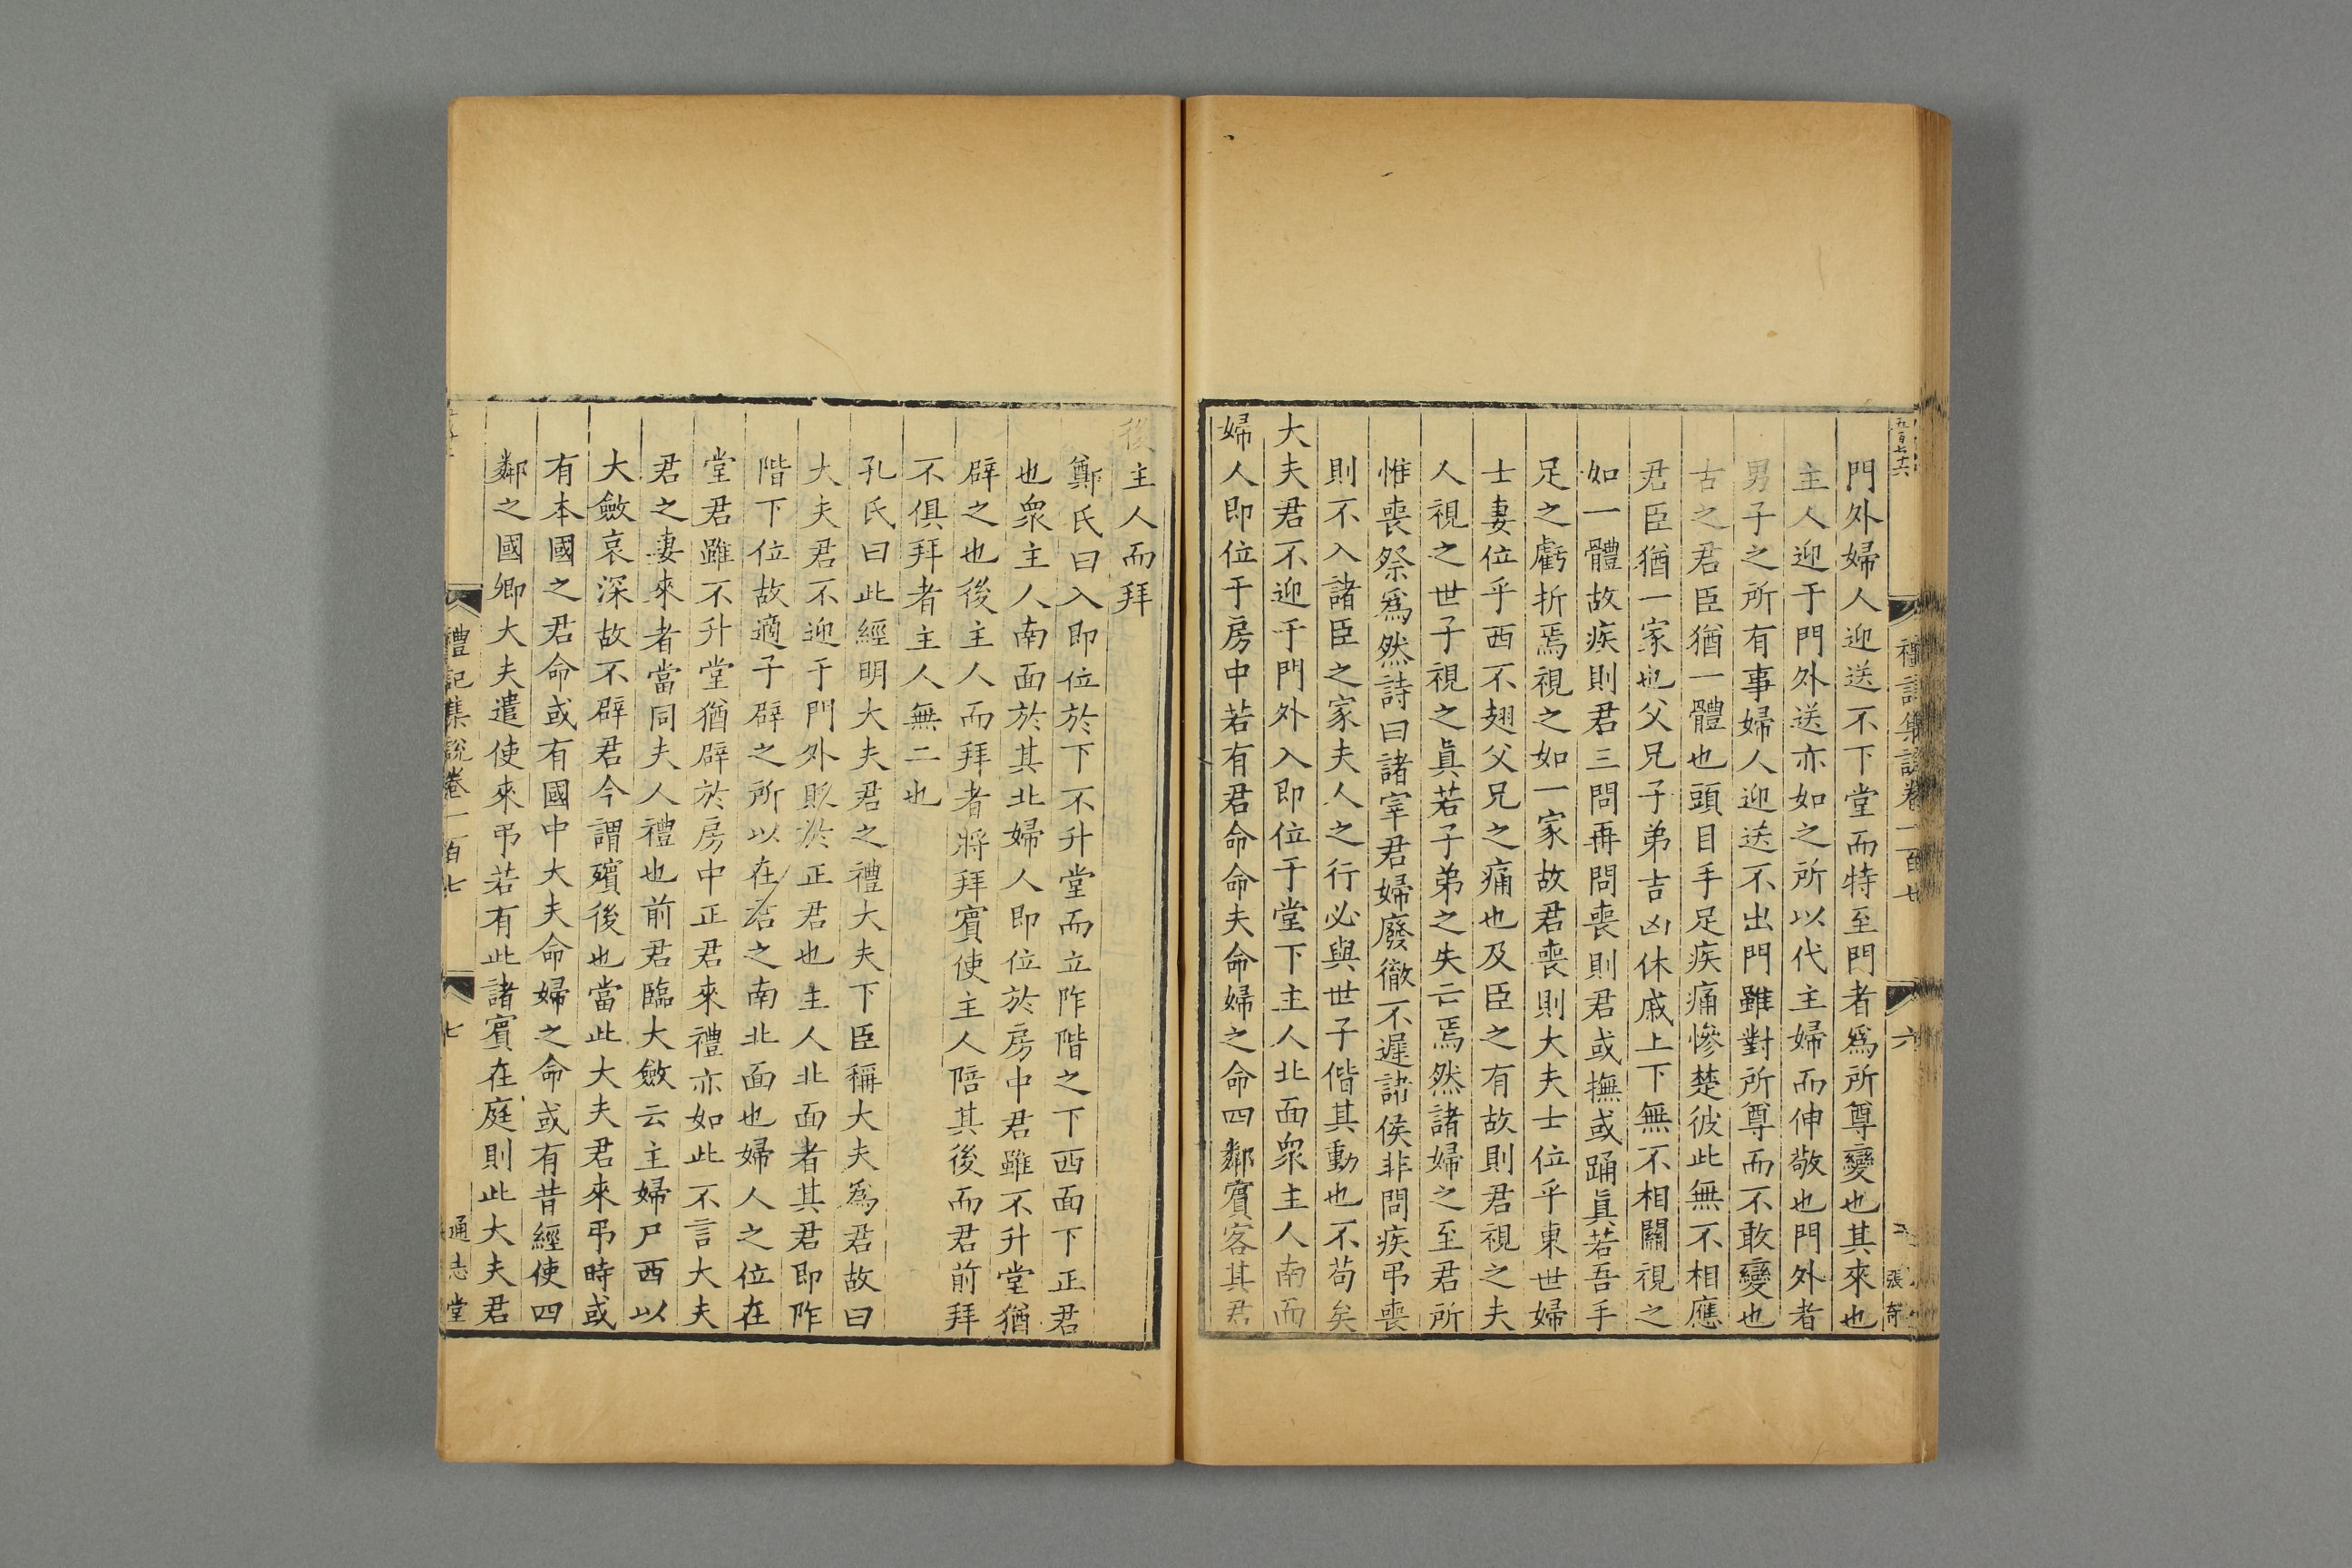 五百七十六
禮記集說卷一百七
六
張奇
門外婦人迎送不下堂而特至門者爲所尊變也其來也
主人迎于門外送亦如之所以代主婦而伸敬也門外者
男子之所有事婦人迎送不出門雖對所尊而不敢變也
古之君臣猶一體也頭目手足疾痛慘楚彼此無不相應
君臣猶一家也父兄子弟吉凶休戚上下無不相關視之
如一體故疾則君三問再問喪則君或撫或踊眞若吾手
足之虧折焉視之如一家故君喪則大夫士位乎東世婦
士妻位乎西不翅父兄之痛也及臣之有故則君視之夫
人視之世子視之眞若子弟之失亡焉然諸婦之至君所
惟喪祭爲然詩曰諸宰君婦廢徹不遲諸侯非問疾弔喪
則不入諸臣之家夫人之行必與世子偕其動也不苟矣
大夫君不迎于門外入即位于堂下主人北面衆主人南面
婦人即位于房中若有君命命夫命婦之命四鄰賓客其君
後主人而拜
鄭氏曰入即位於下不升堂而立阼階之下西面下正君
也衆主人南面於其北婦人即位於房中君雖不升堂猶
辟之也後主人而拜者將拜賓使主人陪其後而君前拜
不俱拜者主人無二也
孔氏曰此經明大夫君之禮大夫下臣稱大夫爲君故曰
大夫君不迎于門外貶於正君也主人北面者其君即阼
階下位故適子辟之所以在君之南北面也婦人之位在
堂君雖不升堂猶辟於房中正君來禮亦如此不言大夫
君之妻來者當同夫人禮也前君臨大斂云主婦尸西以
大斂哀深故不辟君今謂殯後也當此大夫君來弔時或
有本國之君命或有國中大夫命婦之命或有昔經使四
鄰之國卿大夫遣使來弔若有此諸賓在庭則此大夫君
禮記集說卷一百七
七
通志堂